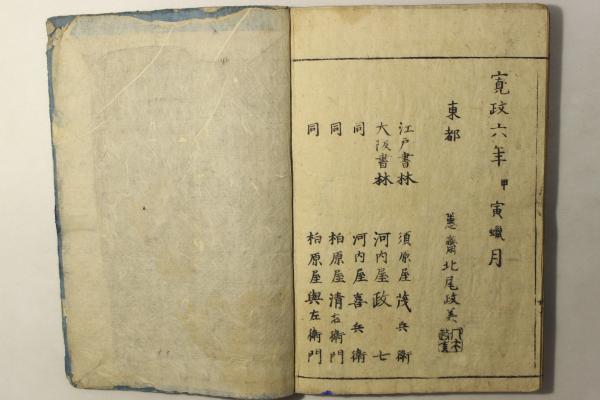 寛政六年甲寅蠟月
東都 蕙齋北尾政美
江戸書林 須原屋茂兵衛
大阪書林 河内屋政七
同 河内屋喜兵衛
同 柏原屋清右衛門
同 柏原屋與左衛門